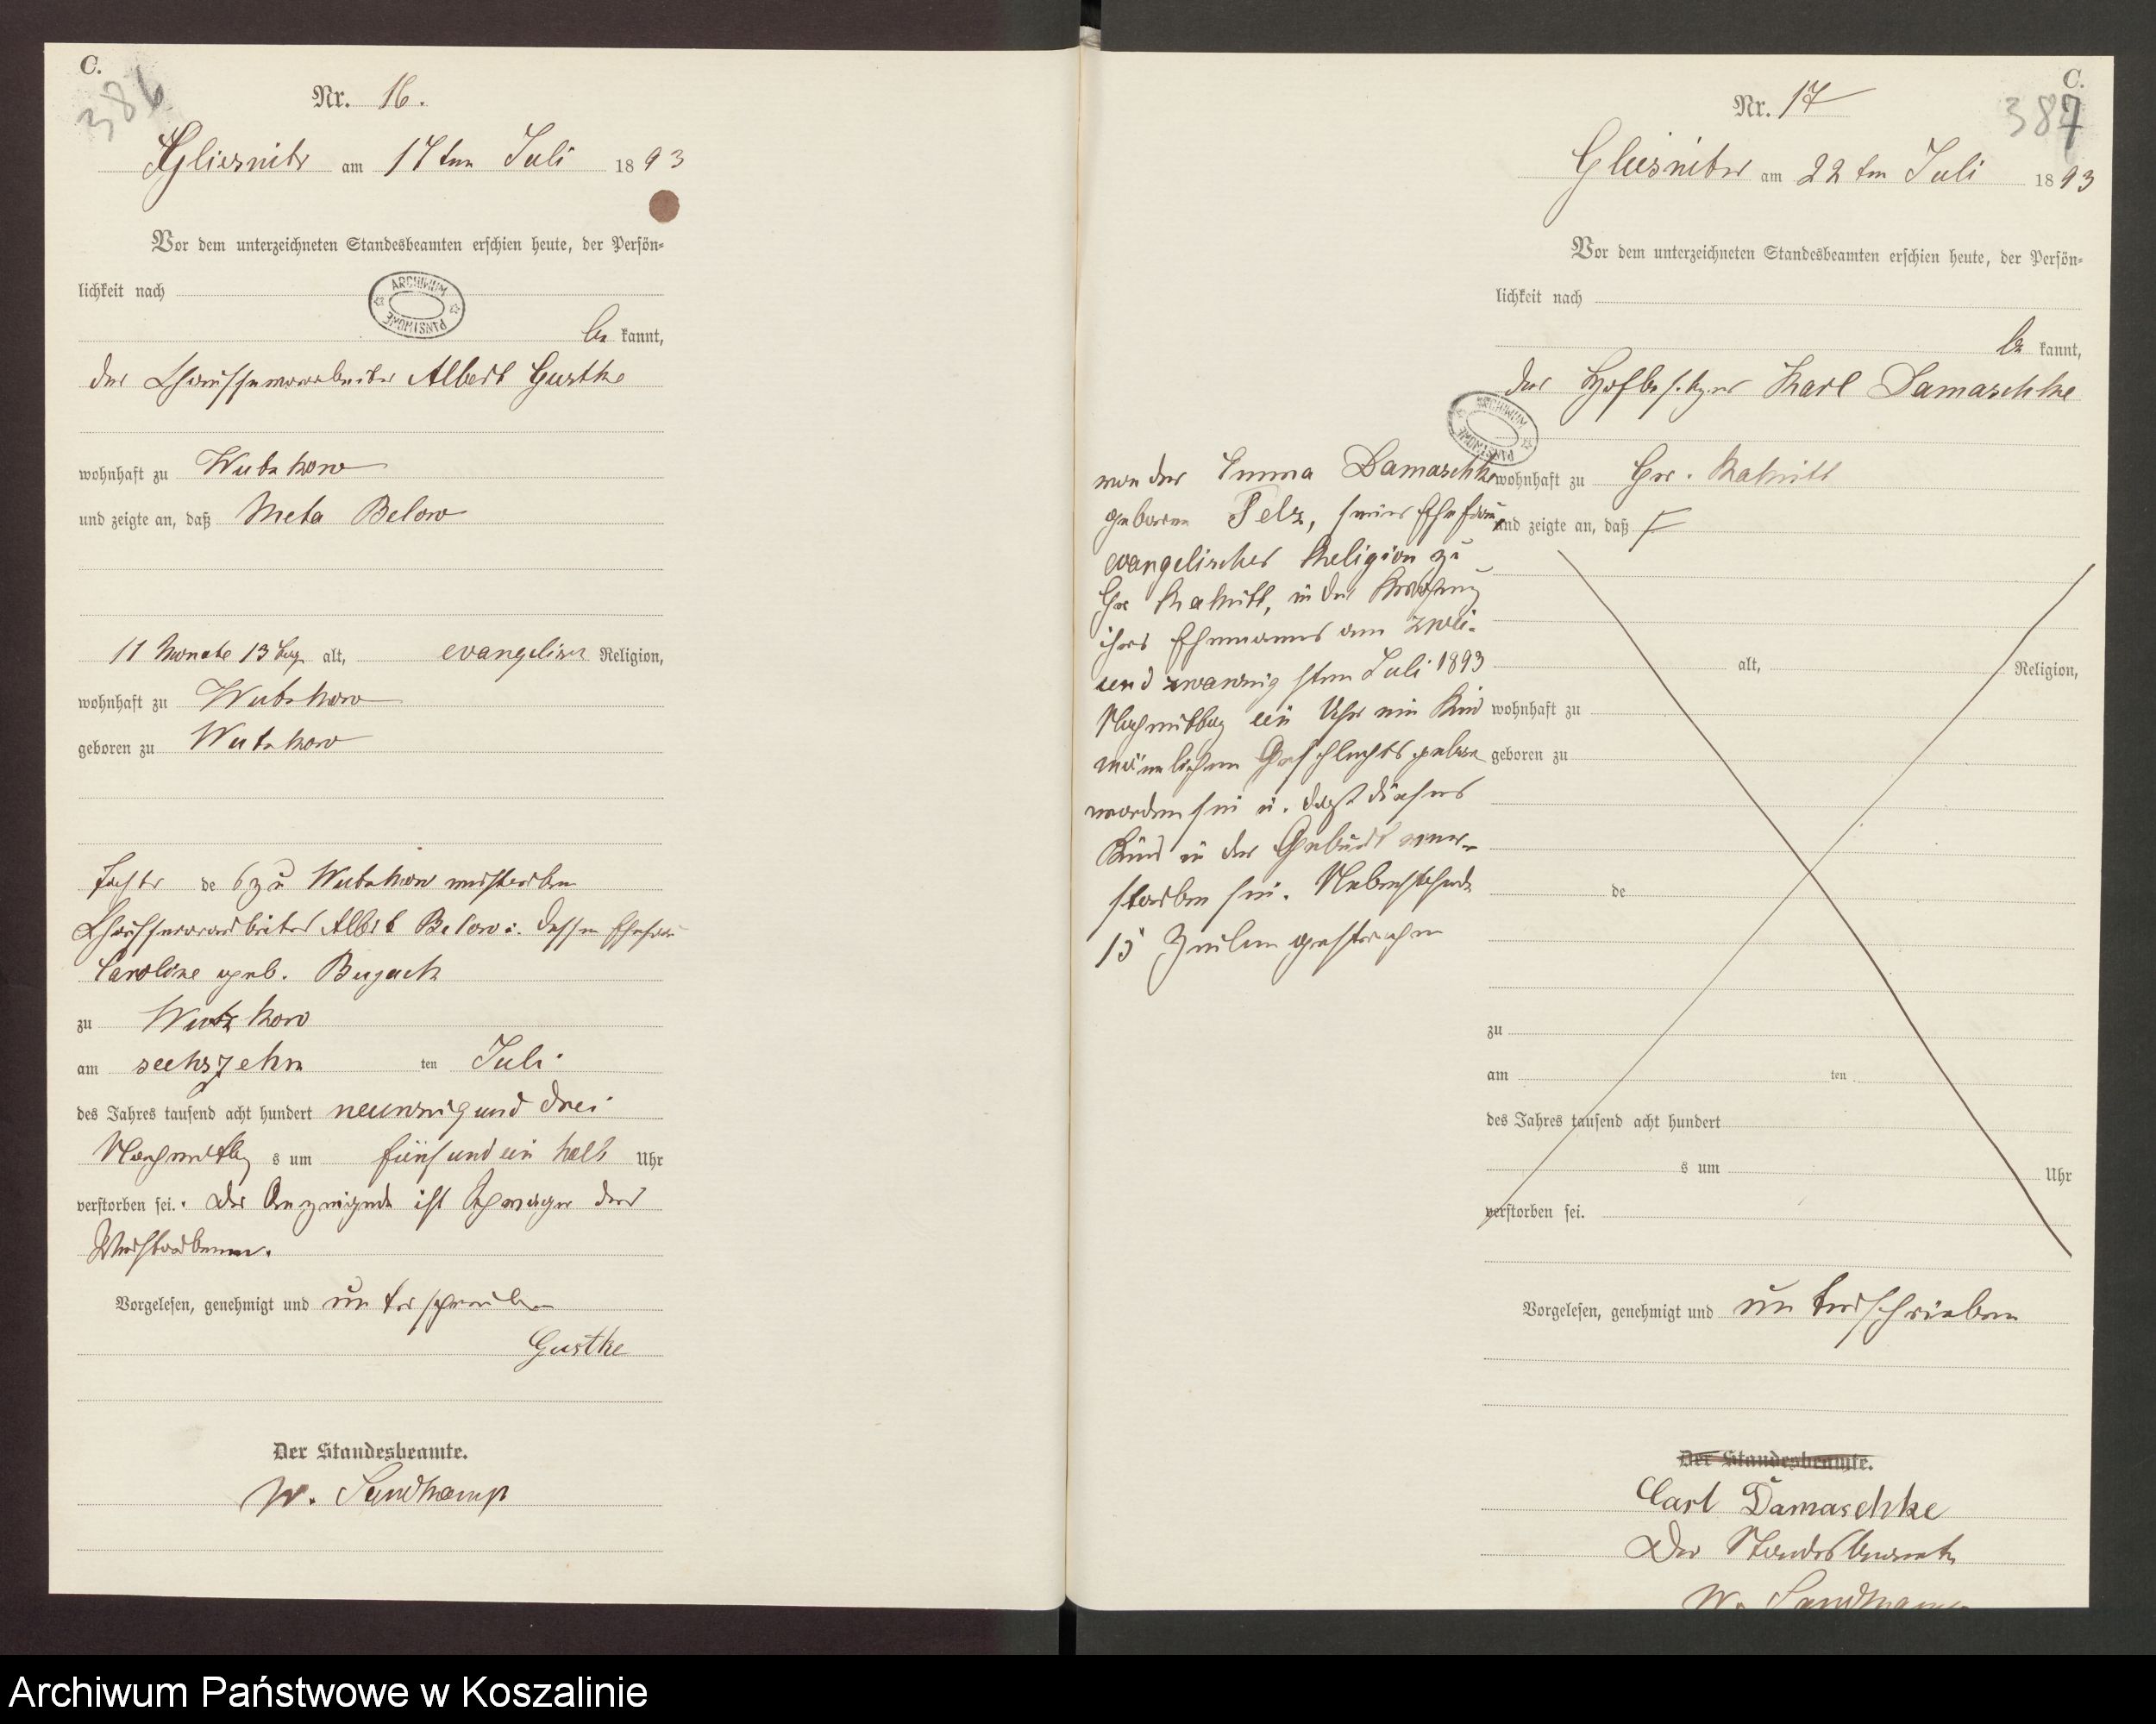 C.
386
Nr. 16.
Gliesnitz am 17ten Juli 1893
Vor dem unterzeichneten Standesbeamten erschien heute, der Persön-
lichkeit nach
ARCHIWUM PAŃSTWOWE
be kannt,
der Chausseearbeiter Albert Gustke
wohnhaft zu Wutzkow
und zeigte an, daß Meta Below
11 Monate 13 Tag alt, evangelischer Religion,
wohnhaft zu Wutzkow
geboren zu Wutzkow
Tochter de s zu Wutzkow verstorben
Chausseearbeiter Albert Below u. dessen Ehefrau
Caroline geb.
zu Wutzkow
am sechszehn ten Juli
des Jahres tausend acht hundert neunzig und drei
Nachmittag s um fünf und ein halb Uhr
verstorben sei. Der Anzeigende ist Schwager der
Verstorbenen.
Vorgelesen, genehmigt und unterschrieben
Gustke
Der Standesbeamte.
W. Sandkamp
C.
387
Nr. 17
Gliesnitz am 22ten Juli 1893
Vor dem unterzeichneten Standesbeamten erschien heute, der Persön-
lichkeit nach
be kannt,
der Hofbesitzer Karl Damaschke
ARCHIWUM PAŃSTWOWE
wohnhaft zu Gr. Rakitt
und zeigte an, daß
alt, Religion,
wohnhaft zu
geboren zu
de
zu
am ten
des Jahres tausend acht hundert
s um Uhr
verstorben sei.
von der Emma Damaschke
geborene Pelz, seiner Ehefrau
evangelischer Religion zu
Gr Rakitt, in der Wohnung
ihres Ehemannes am zwei-
und zwanzigsten Juli 1893
Nachmittag ein Uhr ein Kind
männlichen Geschlechts geboren
worden sei u. daß dieses
Kind in der Geburt ver-
storben sei. Nebenstehende
15 Zeilen gestrichen
Vorgelesen, genehmigt und unterschrieben
Der Standesbeamte.
Carl Damaschke
Der Standesbeamte
W. Sandkamp
Archiwum Państwowe w Koszalinie